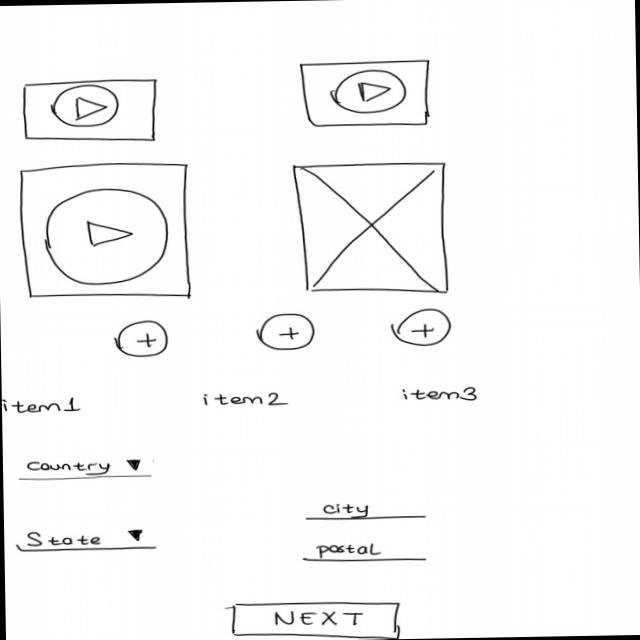 + + +
item1 item2 item3
Country ▼
city
State ▼
postal
NEXT